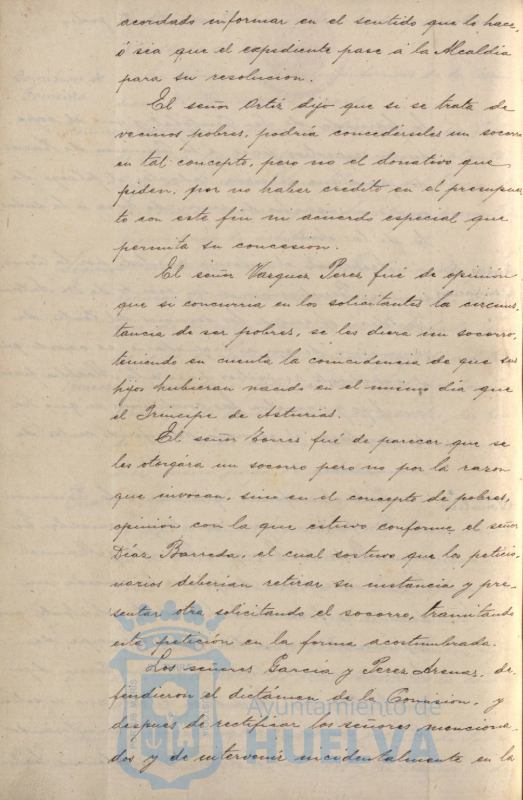 acordado informar en el sentido que lo hace,
ó sea que el expediente pase á la Alcaldía
para su resolucion.
El señor Ortiz dijo que si se trata de
vecinos pobres, podria concedérseles un socorro
en tal concepto, pero no el donativo que
piden, por no haber crédito en el presupues
to con este fin ni acuerdo especial que
permita su concesion.
El señor Vazquez Perez fué de opinión
que si concurria en los solicitantes la circuns
tancia de ser pobres, se les diera un socorro,
teniendo en cuenta la coincidencia de que sus
hijos hubieran nacido en el mismo dia que
el Principe de Asturias.
El señor Torres fué de parecer que se
les otorgára un socorro pero no por la razon
que invocan, sino en el concepto de pobres,
opinión con la que estuvo conforme el señor
Díaz Barreda, el cual sostuvo que los peticio-
narios deberían retirar su instancia y pre-
sentar otra solicitando el socorro, tramitando
esta petición en la forma acostumbrada.
Los señores García y Perez Arenas, de-
fendieron el dictámen de la Comision, y
despues de rectificar los señores menciona-
dos y de intervenir incidentalmente en la
Ayuntamiento de
HUELVA